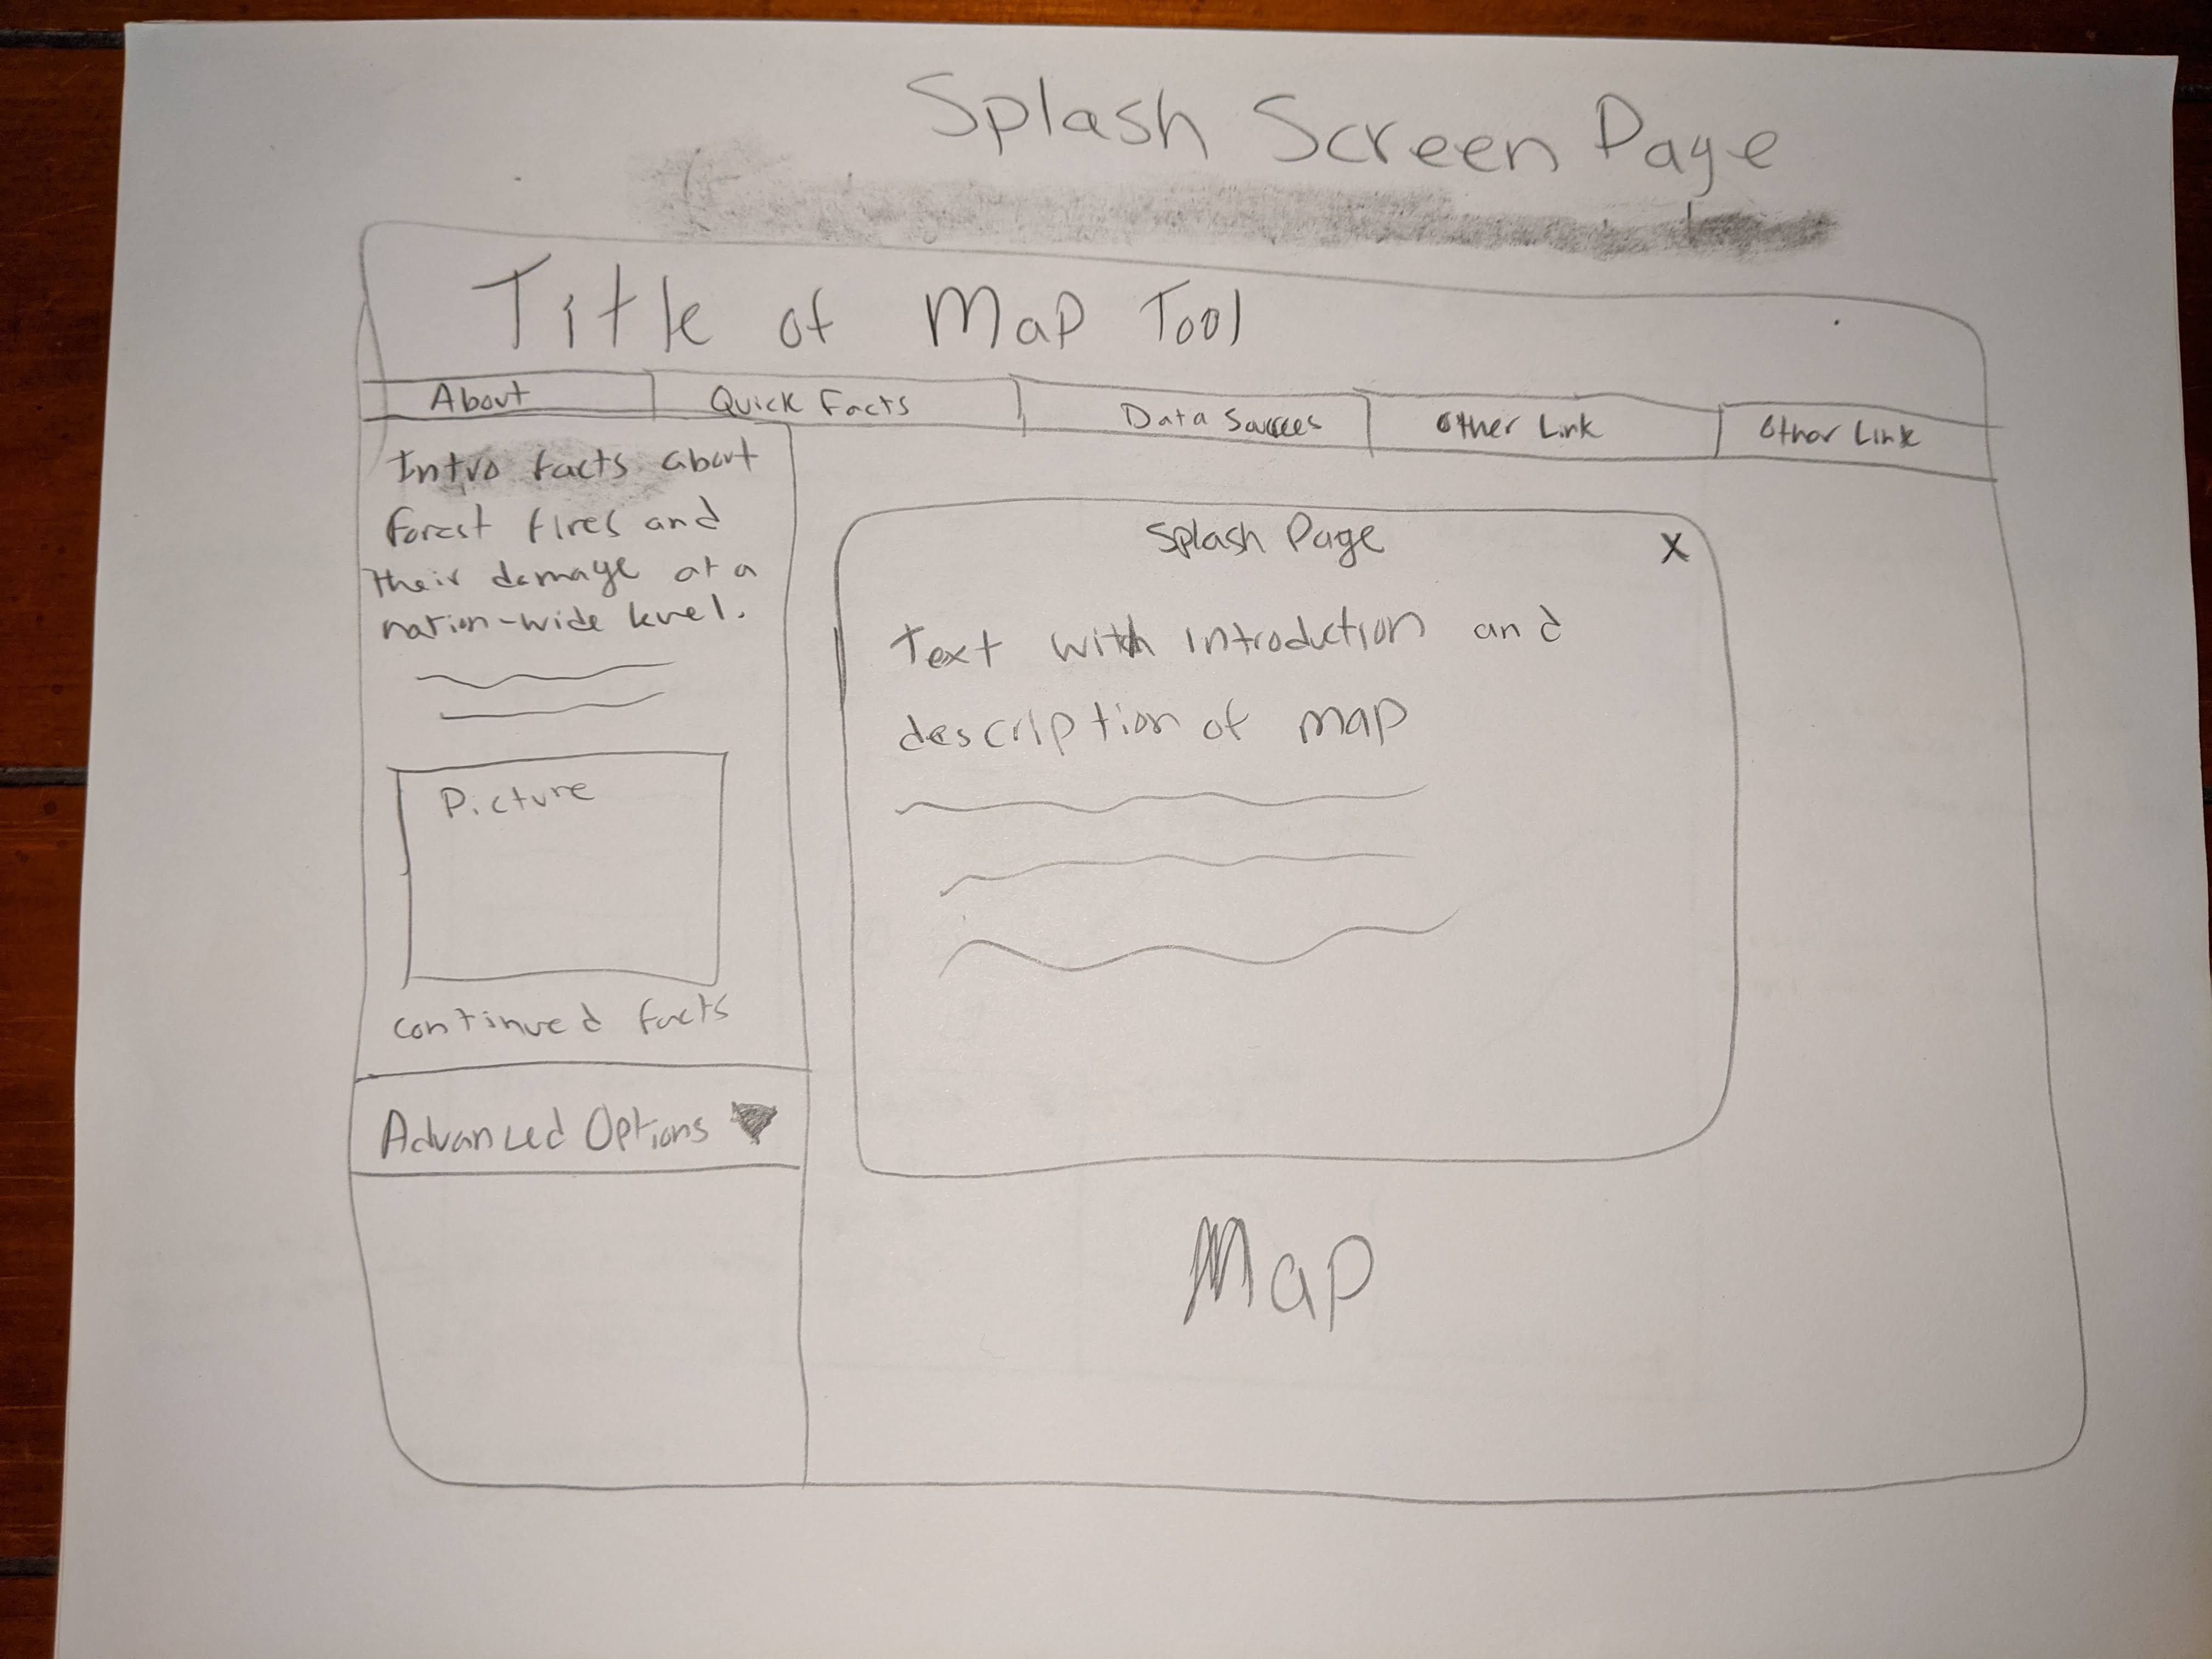 Splash Screen Page
Title of Map Tool
About
Quick Facts
Data Sources
Other Link
Other Link
Intro facts about
forest fires and
their damage at a
nation-wide level.
Picture
continued facts
Advanced Options
Splash Page
X
Text with introduction and
description of map
Map